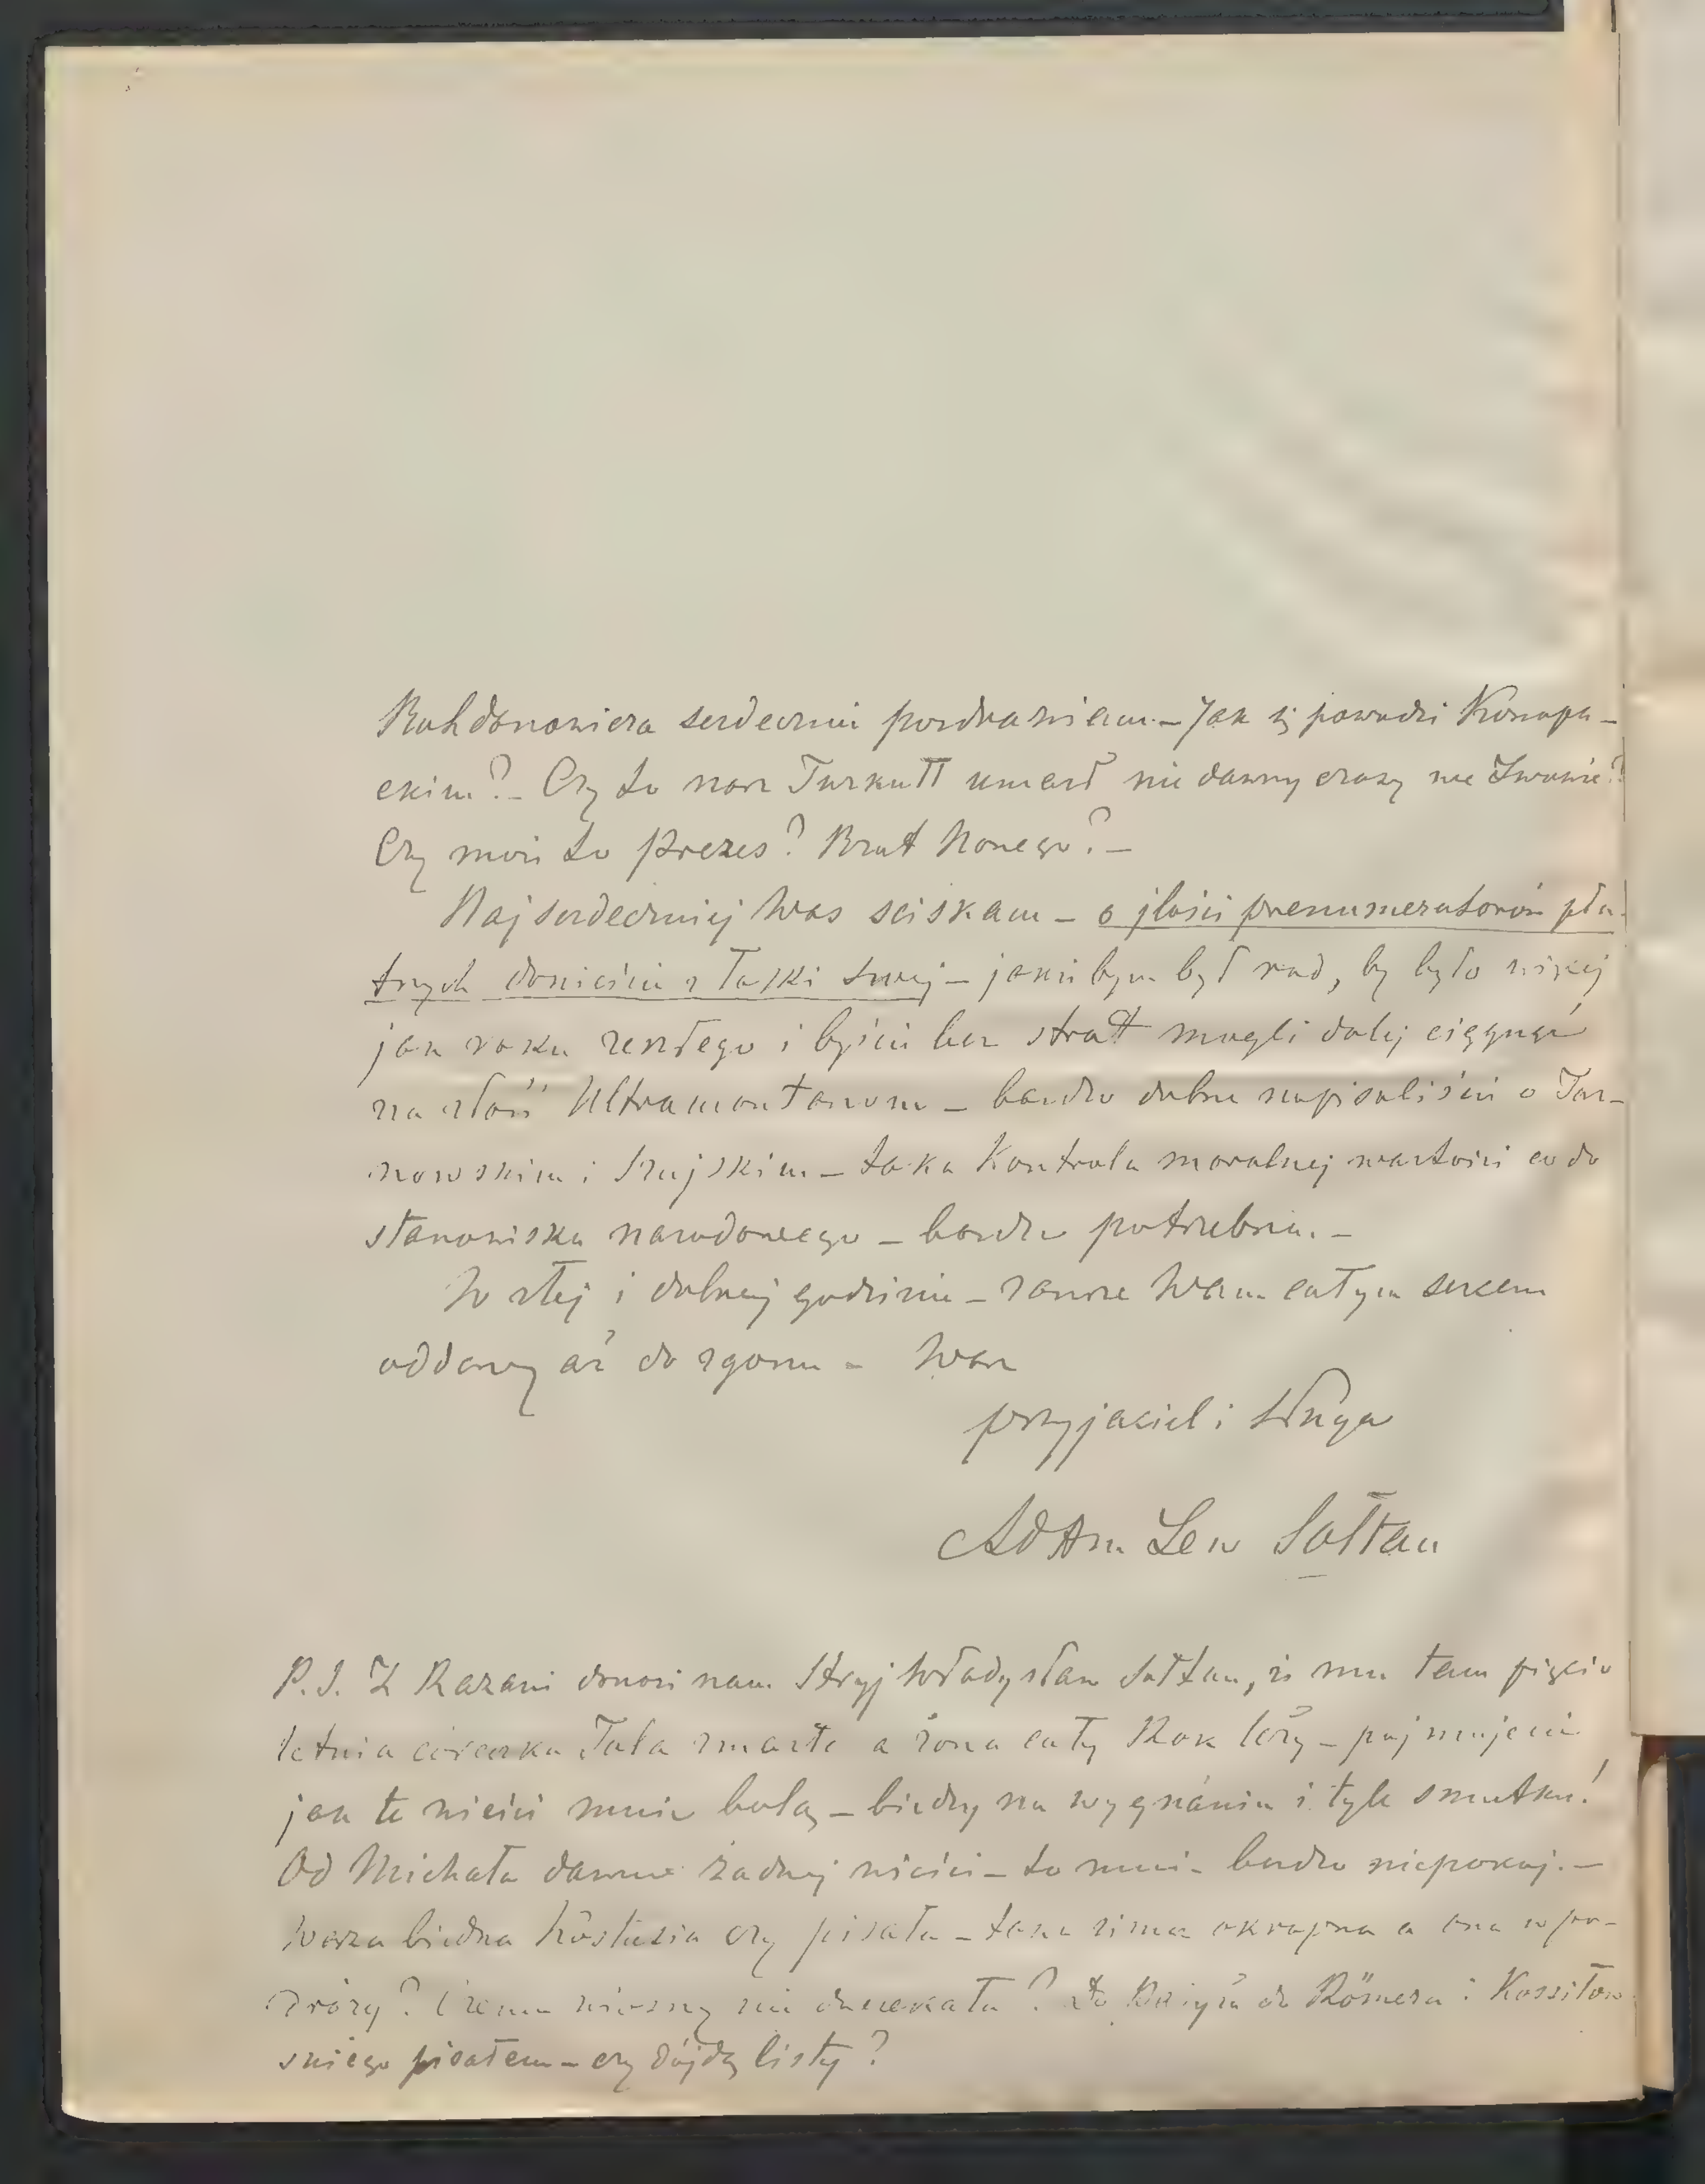 Bohdanowicza serdecznie pozdrawiam. – Jak się powodzi Konopa-
ckim? – Czy to nasz Turkułł umarł nie dawny czasy we Lwowie?
Czy może to Prezes? Brat Nowego? –
Najserdeczniej Was ściskam – o jlości prenumeratorów pła-
tnych donieście z łaski swej – jakżebym był rad, by było więcej
jak roku zeszłego i byście bez strat mogli dalej ciągnąć
na złość Ultramontanom – bardzo dobrze napisaliście o Tar-
nowskim i Szujskim – taka Kontrola moralnej wartości co do
stanowiska narodowego – bardzo potrzebna. –
W złej i dobrej godzinie – zawsze Wam całym sercem
oddany aż do zgonu – Wasz
przyjaciel i sługa
Adam Lew Sołtan
P.S. Z Kazani donosi nam Stryj Władysław Sołtan, iż mu tam pięcio
letnia córeczka Tola zmarła a żona cały Rok leży – pojmujecie
jak te wieści mnie bolą – biedny na wygnaniu i tyle smutku!
Od Michała dawno żadnej wieści – to mnie bardzo niepokoj. –
Wasza biedna Kostusia czy pisała – taka zima okropna a ona w po-
dróży? Czemu wiosny nie doczekała? Do Rzymu do Römera i Kossiłow
skiego pisałem – czy dójdą listy?